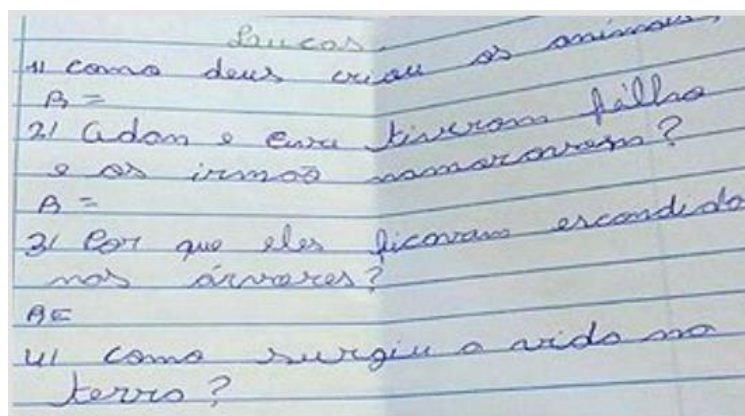 Lucas.
1) como deus criou os animais,
R =
2) Adam e eva tiverom filho
e os irmos namoravam?
R =
3) Por que eles ficavam escondido
nas árvores?
R =
4) como surgiu a vida na
terra?